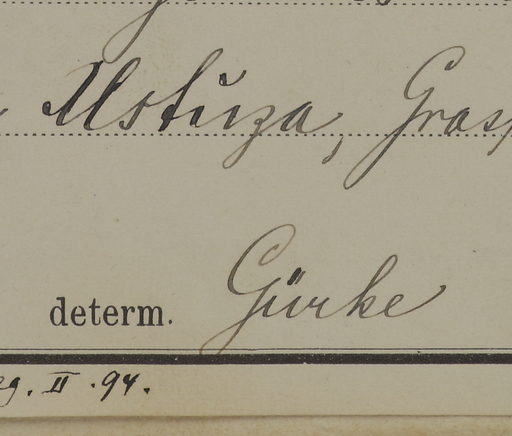 Ustuza, Gras
determ. Gürke
eg. II. 94.